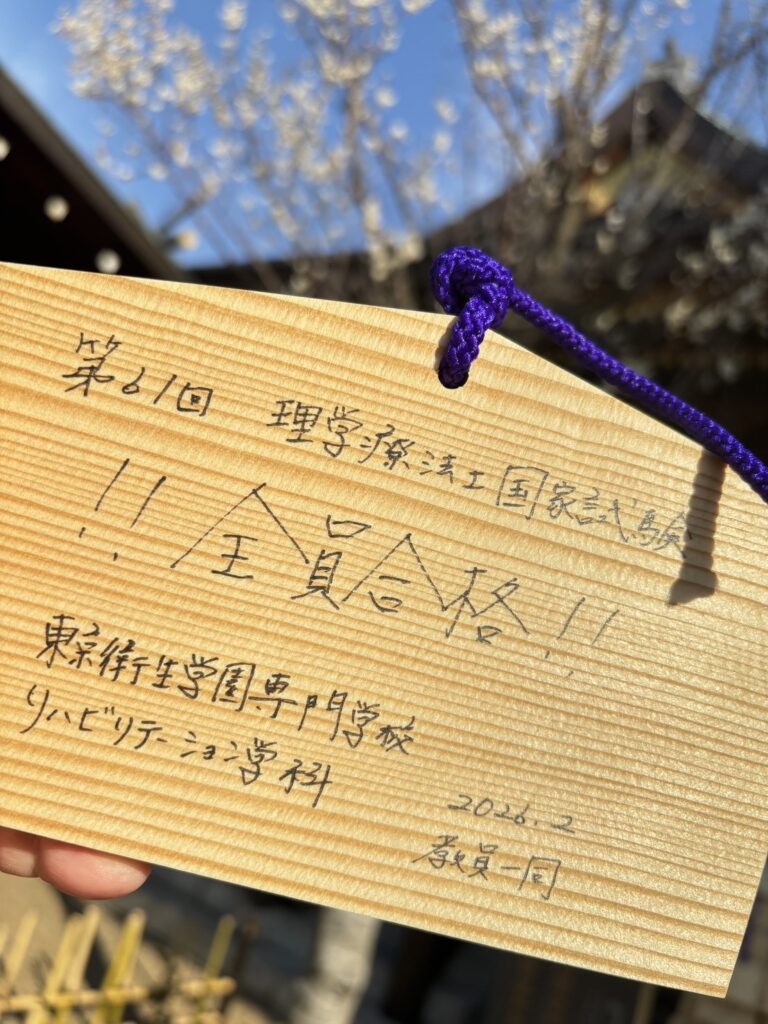 第61回 理学療法士国家試験
!! 全員合格 !!
東京衛生学園専門学校
リハビリテーション学科
2026.2
教員一同